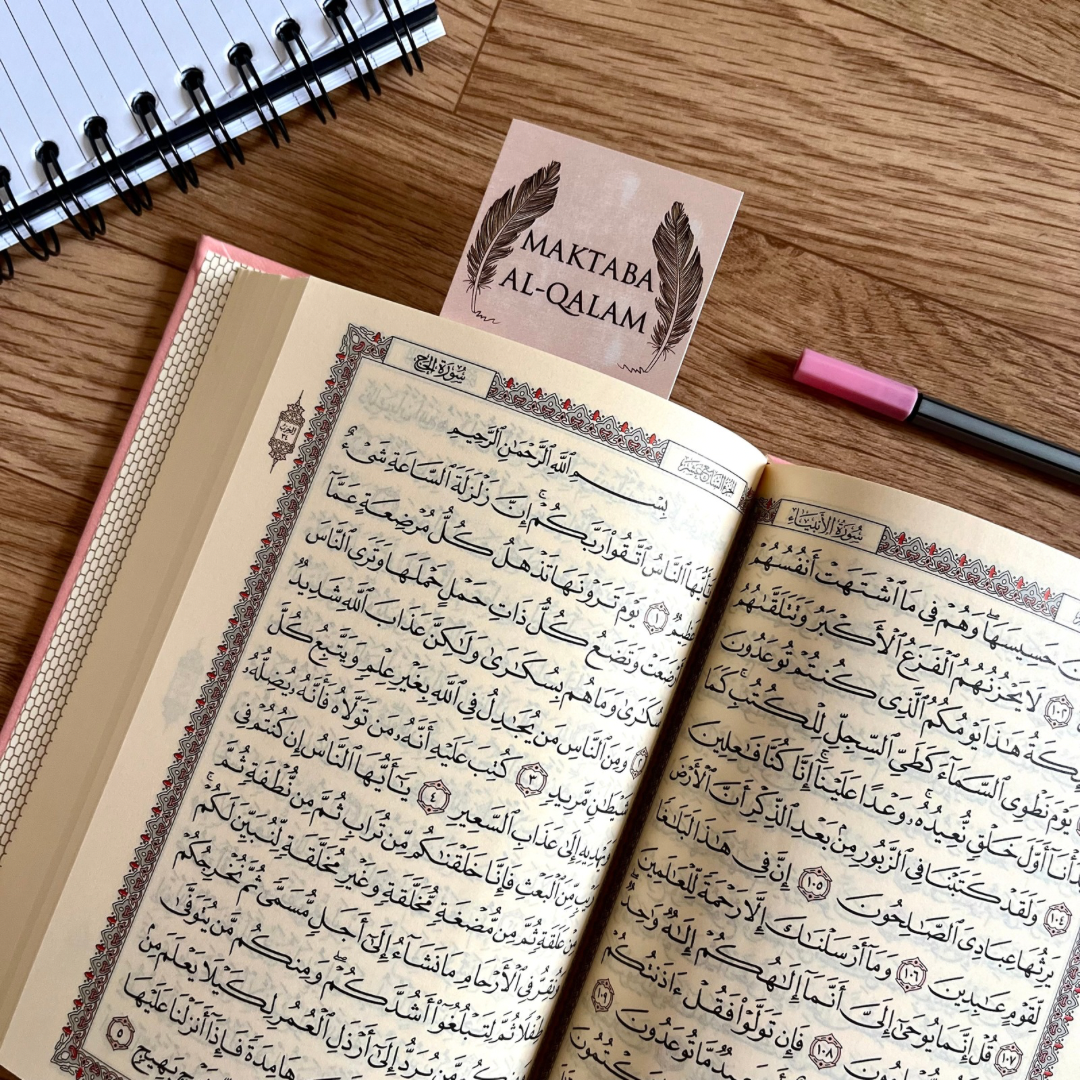 MAKTABA
AL-QALAM
سُورَةُ الأَنبِيَاءِ
حَسِيسَهَا ۖ وَهُمْ فِى مَا ٱشْتَهَتْ أَنفُسُهُمْ
١٠٢ لَا يَحْزُنُهُمُ ٱلْفَزَعُ ٱلْأَكْبَرُ وَتَتَلَقَّىٰهُمُ
هَـٰذَا يَوْمُكُمُ ٱلَّذِى كُنتُمْ تُوعَدُونَ
يَوْمَ نَطْوِى ٱلسَّمَآءَ كَطَىِّ ٱلسِّجِلِّ لِلْكُتُبِ ۚ كَمَا
بَدَأْنَآ أَوَّلَ خَلْقٍ نُّعِيدُهُۥ ۚ وَعْدًا عَلَيْنَآ ۚ إِنَّا كُنَّا فَـٰعِلِينَ
١٠٤ وَلَقَدْ كَتَبْنَا فِى ٱلزَّبُورِ مِنۢ بَعْدِ ٱلذِّكْرِ أَنَّ ٱلْأَرْضَ
يَرِثُهَا عِبَادِىَ ٱلصَّـٰلِحُونَ ١٠٥ إِنَّ فِى هَـٰذَا لَبَلَـٰغًا
لِّقَوْمٍ عَـٰبِدِينَ ١٠٦ وَمَآ أَرْسَلْنَـٰكَ إِلَّا رَحْمَةً لِّلْعَـٰلَمِينَ
١٠٧ قُلْ إِنَّمَا يُوحَىٰٓ إِلَىَّ أَنَّمَآ إِلَـٰهُكُمْ إِلَـٰهٌ وَٰحِدٌ ۖ
١٠٨ فَإِن تَوَلَّوْا۟ فَقُلْ ءَاذَنتُكُمْ
مَّا تُوعَدُونَ ١٠٩
تَكْتُمُونَ
سُورَةُ الحَجّ
الجزء السابع عشر
الحزب ٣٤
بِسْمِ ٱللَّهِ ٱلرَّحْمَـٰنِ ٱلرَّحِيمِ
يَـٰٓأَيُّهَا ٱلنَّاسُ ٱتَّقُوا۟ رَبَّكُمْ ۚ إِنَّ زَلْزَلَةَ ٱلسَّاعَةِ شَىْءٌ
عَظِيمٌ ١ يَوْمَ تَرَوْنَهَا تَذْهَلُ كُلُّ مُرْضِعَةٍ عَمَّآ
أَرْضَعَتْ وَتَضَعُ كُلُّ ذَاتِ حَمْلٍ حَمْلَهَا وَتَرَى ٱلنَّاسَ
سُكَـٰرَىٰ وَمَا هُم بِسُكَـٰرَىٰ وَلَـٰكِنَّ عَذَابَ ٱللَّهِ شَدِيدٌ
٢ وَمِنَ ٱلنَّاسِ مَن يُجَـٰدِلُ فِى ٱللَّهِ بِغَيْرِ عِلْمٍ وَيَتَّبِعُ كُلَّ
شَيْطَـٰنٍ مَّرِيدٍ ٣ كُتِبَ عَلَيْهِ أَنَّهُۥ مَن تَوَلَّاهُ فَأَنَّهُۥ يُضِلُّهُۥ
وَيَهْدِيهِ إِلَىٰ عَذَابِ ٱلسَّعِيرِ ٤ يَـٰٓأَيُّهَا ٱلنَّاسُ إِن كُنتُمْ فِى
رَيْبٍ مِّنَ ٱلْبَعْثِ فَإِنَّا خَلَقْنَـٰكُم مِّن تُرَابٍ ثُمَّ مِن نُّطْفَةٍ ثُمَّ
مِنْ عَلَقَةٍ ثُمَّ مِن مُّضْغَةٍ مُّخَلَّقَةٍ وَغَيْرِ مُخَلَّقَةٍ لِّنُبَيِّنَ لَكُمْ ۚ
وَنُقِرُّ فِى ٱلْأَرْحَامِ مَا نَشَآءُ إِلَىٰٓ أَجَلٍ مُّسَمًّى ثُمَّ نُخْرِجُكُمْ
طِفْلًا ثُمَّ لِتَبْلُغُوٓا۟ أَشُدَّكُمْ ۖ وَمِنكُم مَّن يُتَوَفَّىٰ
وَمِنكُم مَّن يُرَدُّ إِلَىٰٓ أَرْذَلِ ٱلْعُمُرِ لِكَيْلَا يَعْلَمَ مِنۢ
هَامِدَةً فَإِذَآ أَنزَلْنَا عَلَيْهَا
بَهِيجٍ ٥